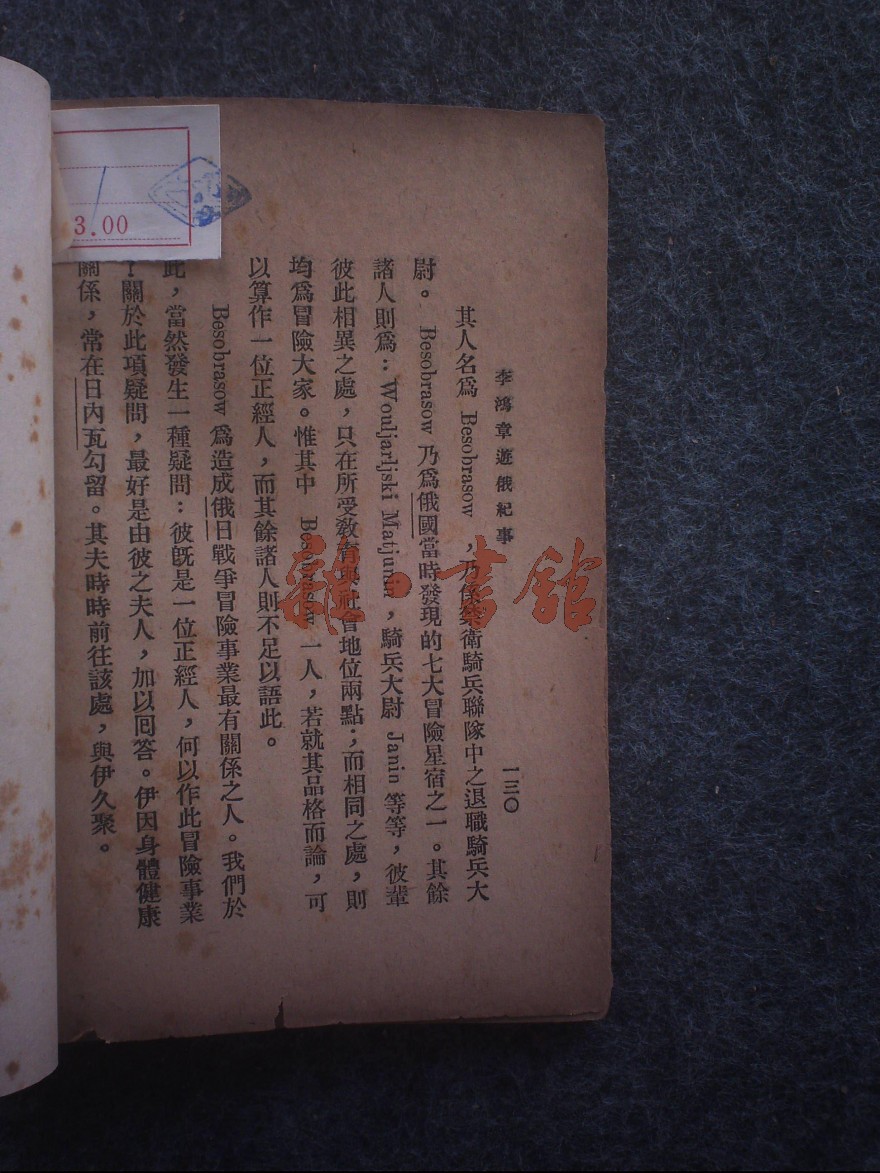 李鴻章遊俄紀事
一三〇
其人名爲 Besobrasow ，乃係禁衛騎兵聯隊中之退職騎兵大
尉。 Besobrasow 乃爲俄國當時發現的七大冒險星宿之一。其餘
諸人則爲：Wouljarljski Matjunin，騎兵大尉 Janin 等等，彼輩
彼此相異之處，只在所受敎育與社會地位兩點；而相同之處，則
均爲冒險大家。惟其中 Besobrasow 一人，若就其品格而論，可
以算作一位正經人，而其餘諸人則不足以語此。
Besobrasow 爲造成俄日戰爭冒險事業最有關係之人。我們於
此，當然發生一種疑問：彼旣是一位正經人，何以作此冒險事業
！關於此項疑問，最好是由彼之夫人，加以囘答。伊因身體健康
關係，常在日內瓦勾留。其夫時時前往該處，與伊久聚。
3.00
雜·書館